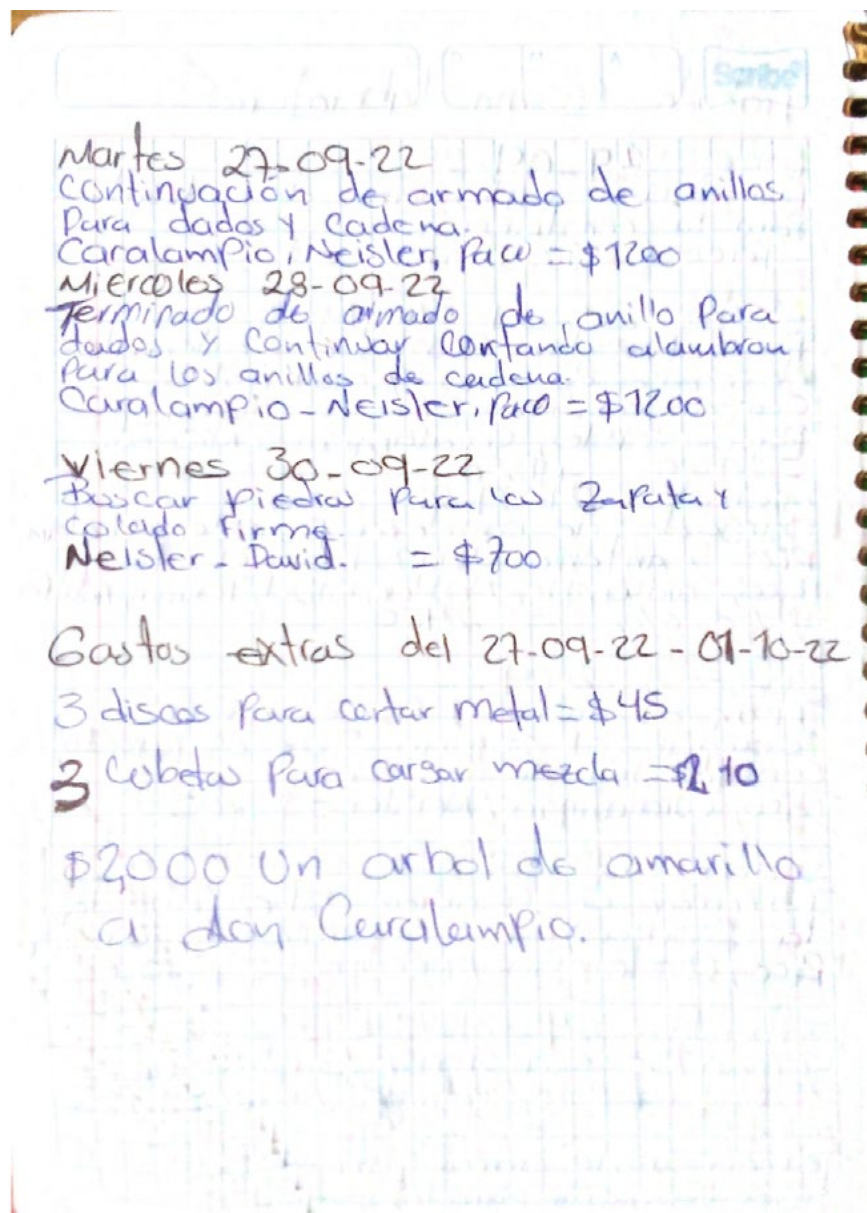 Scribe
Martes 27-09-22
Continuación de armado de anillos
Para dados y cadena.
Caralampio, Neisler, Paco = $1200
Miercoles 28-09-22
Terminado de armado de anillo Para
dados y Continuar Cortando alambron
Para los anillos de cadena.
Caralampio - Neisler, Paco = $1200
Viernes 30-09-22
Buscar piedras para las Zapata y
colado firme.
Neisler - David. = $700
Gastos extras del 27-09-22 - 01-10-22
3 discos Para cortar metal = $45
3 Cubetas Para cargar mezcla = $210
$2,000 Un arbol de amarillo
a don Caralampio.